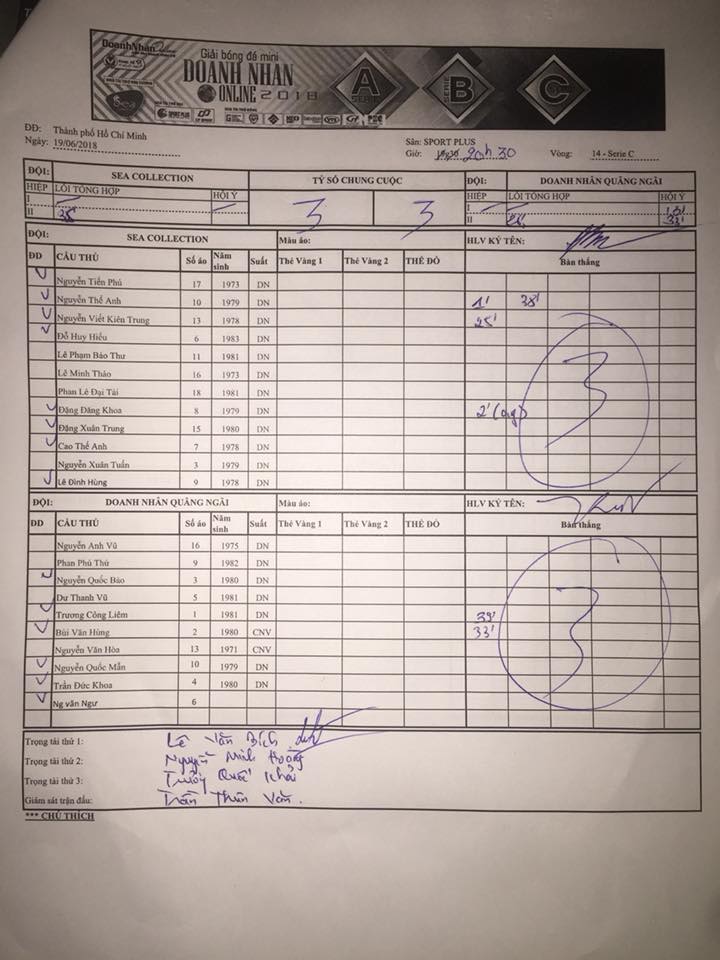 DoanhNhân
Giải bóng đá mini
DOANH NHÂN
ONLINE 2018
A SERIE
B SERIE
C
Sea
SPORT PLUS
ĐĐ: Thành phố Hồ Chí Minh
Ngày: 19/06/2018
Sân: SPORT PLUS
Giờ: 20h30 Vòng: 14 - Serie C
ĐỘI: SEA COLLECTION TỶ SỐ CHUNG CUỘC ĐỘI: DOANH NHÂN QUẢNG NGÃI
HIỆP LỖI TỔNG HỢP HỘI Ý 3 3 HIỆP LỖI TỔNG HỢP HỘI Ý
I I
II II 33'
ĐỘI: SEA COLLECTION Màu áo: HLV KÝ TÊN:
ĐD CẦU THỦ Số áo Năm sinh Suất Thẻ Vàng 1 Thẻ Vàng 2 THẺ ĐỎ Bàn thắng
Nguyễn Tiến Phú 17 1973 DN
Nguyễn Thế Anh 10 1979 DN 1' 38'
Nguyễn Viết Kiên Trung 13 1978 DN 25'
Đỗ Huy Hiếu 6 1983 DN
Lê Phạm Bảo Thư 11 1981 DN
Lê Minh Thảo 16 1973 DN
Phan Lê Đại Tài 18 1981 DN
Đặng Đăng Khoa 8 1979 DN 2' (og)
Đặng Xuân Trung 15 1980 DN
Cao Thế Anh 7 1978 DN
Nguyễn Xuân Tuấn 3 1979 DN
Lê Đình Hùng 9 1978 DN
3
ĐỘI: DOANH NHÂN QUẢNG NGÃI Màu áo: HLV KÝ TÊN:
ĐD CẦU THỦ Số áo Năm sinh Suất Thẻ Vàng 1 Thẻ Vàng 2 THẺ ĐỎ Bàn thắng
Nguyễn Anh Vũ 16 1975 DN
Phan Phú Thứ 9 1982 DN
Nguyễn Quốc Bảo 3 1980 DN
Dư Thanh Vũ 5 1981 DN
Trương Công Liêm 1 1981 DN 39'
Bùi Văn Hùng 2 1980 CNV 33'
Nguyễn Văn Hòa 13 1971 CNV
Nguyễn Quốc Mẫn 10 1979 DN
Trần Đức Khoa 4 1980 DN
Ng văn Ngư 6
3
Trọng tài thứ 1: Lê Văn Bích
Trọng tài thứ 2: Nguyễn Minh Hoàng
Trọng tài thứ 3: Quốc Khải
Giám sát trận đấu: Trần Văn
*** CHÚ THÍCH